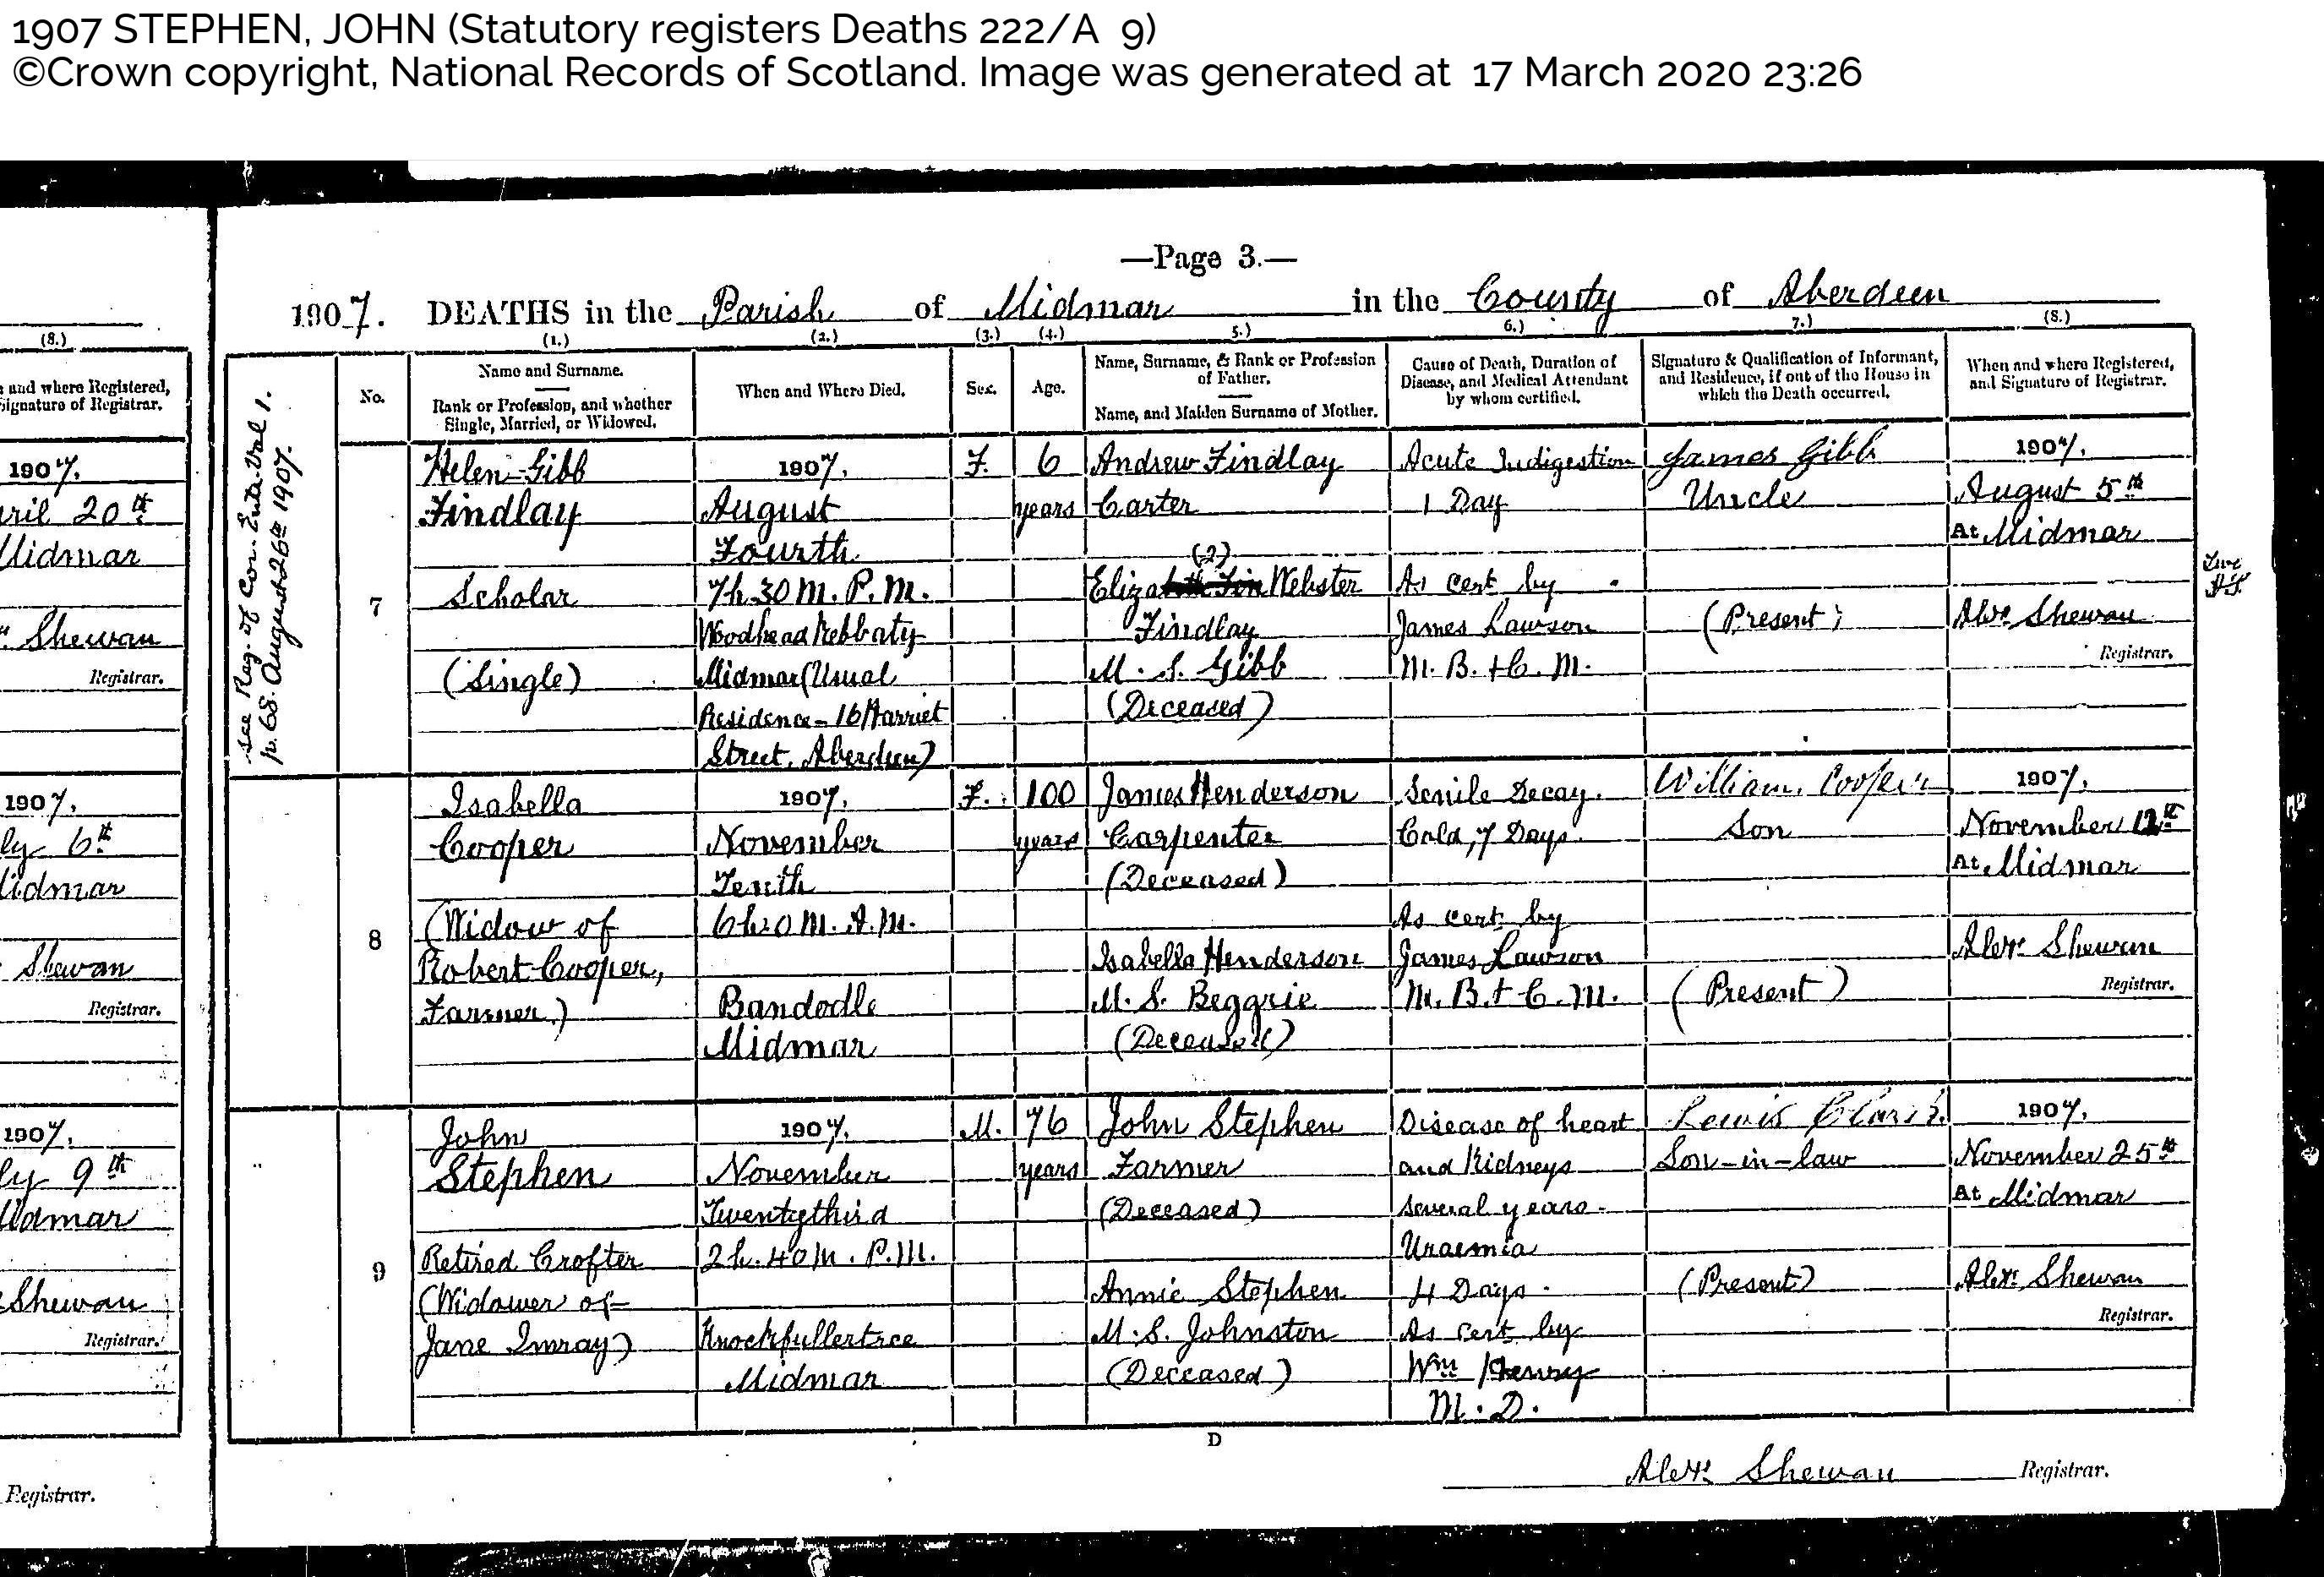 1907 STEPHEN, JOHN (Statutory registers Deaths 222/A 9)
©Crown copyright, National Records of Scotland. Image was generated at 17 March 2020 23:26
—Page 3.—
1907. DEATHS in the Parish of Midmar in the County of Aberdeen
(8.)
and where Registered,
Signature of Registrar.
1907.
April 20th
Midmar
Shewan
Registrar.
1907.
ly 6th
Midmar
Shewan
Registrar.
1907.
ly 9th
Midmar
Shewan
Registrar.
Registrar.
See Reg. of Cor. Ents. Vol 1.
p. 68. August 26th 1907.
No.
(1.)
Name and Surname.
Rank or Profession, and whether
Single, Married, or Widowed.
(2.)
When and Where Died.
(3.)
Sex.
(4.)
Age.
5.)
Name, Surname, & Rank or Profession
of Father.
Name, and Maiden Surname of Mother.
6.)
Cause of Death, Duration of
Disease, and Medical Attendant
by whom certified.
7.)
Signature & Qualification of Informant,
and Residence, if out of the House in
which the Death occurred.
(8.)
When and where Registered,
and Signature of Registrar.
7
Helen Gibb
Findlay
Scholar
(Single)
1907.
August
Fourth
7h. 30 M. P.M.
Woodhead Kebbaty
Midmar (Usual
Residence - 16 Harriet
Street, Aberdeen)
F.
6
years
Andrew Findlay
Carter
(2)
Eliza Webster
Findlay
M. S. Gibb
(Deceased)
Acute Indigestion
1 Day
As cert by
James Lawson
M. B. + C. M.
James Gibb
Uncle
(Present)
1907.
August 5th
At Midmar
Alexr Shewan
Registrar.
Two
A.S.
8
Isabella
Cooper
(Widow of
Robert Cooper,
Farmer.)
1907.
November
Tenth
6h. 0 M. A.M.
Bandodle
Midmar
F.
100
years
James Henderson
Carpenter
(Deceased)
Isabella Henderson
M. S. Beggrie
(Deceased)
Senile Decay.
Cold, 7 Days.
As cert. by
James Lawson
M. B. + C. M.
William Cooper
Son
(Present)
1907.
November 12th
At Midmar
Alexr Shewan
Registrar.
9
John
Stephen
Retired Crofter
(Widower of
Jane Imray)
1907.
November
Twentythird
2h. 40 M. P.M.
Knockfullertree
Midmar
M.
76
years
John Stephen
Farmer
(Deceased)
Annie Stephen
M. S. Johnston
(Deceased)
Disease of heart
and Kidneys
several years.
Uraemia
4 Days.
As cert. by
Wm Henry
M. D.
Lewis Clark.
Son-in-law
(Present)
1907.
November 25th
At Midmar
Alexr Shewan
Registrar.
D
Alexr Shewan Registrar.